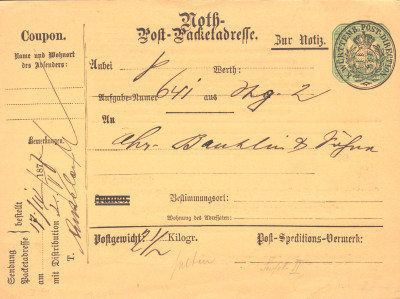 Noth-
Post-Packetadresse.
Zur Notiz.
K. WÜRTTEMB. POST-DIRECTION
Coupon.
Name und Wohnort
des Absenders:
Bemerkungen
Sendung
Packetadresse } bestellt
am 187
mit Distribution
T.
Anbei Werth:
Aufgabe-Numer 641 aus Stg. 2
An
Chr. & Söhne
Bestimmungsort:
Wohnung des Adressaten:
Postgewicht: 2 1/2 Kilogr.
Post-Speditions-Vermerk: